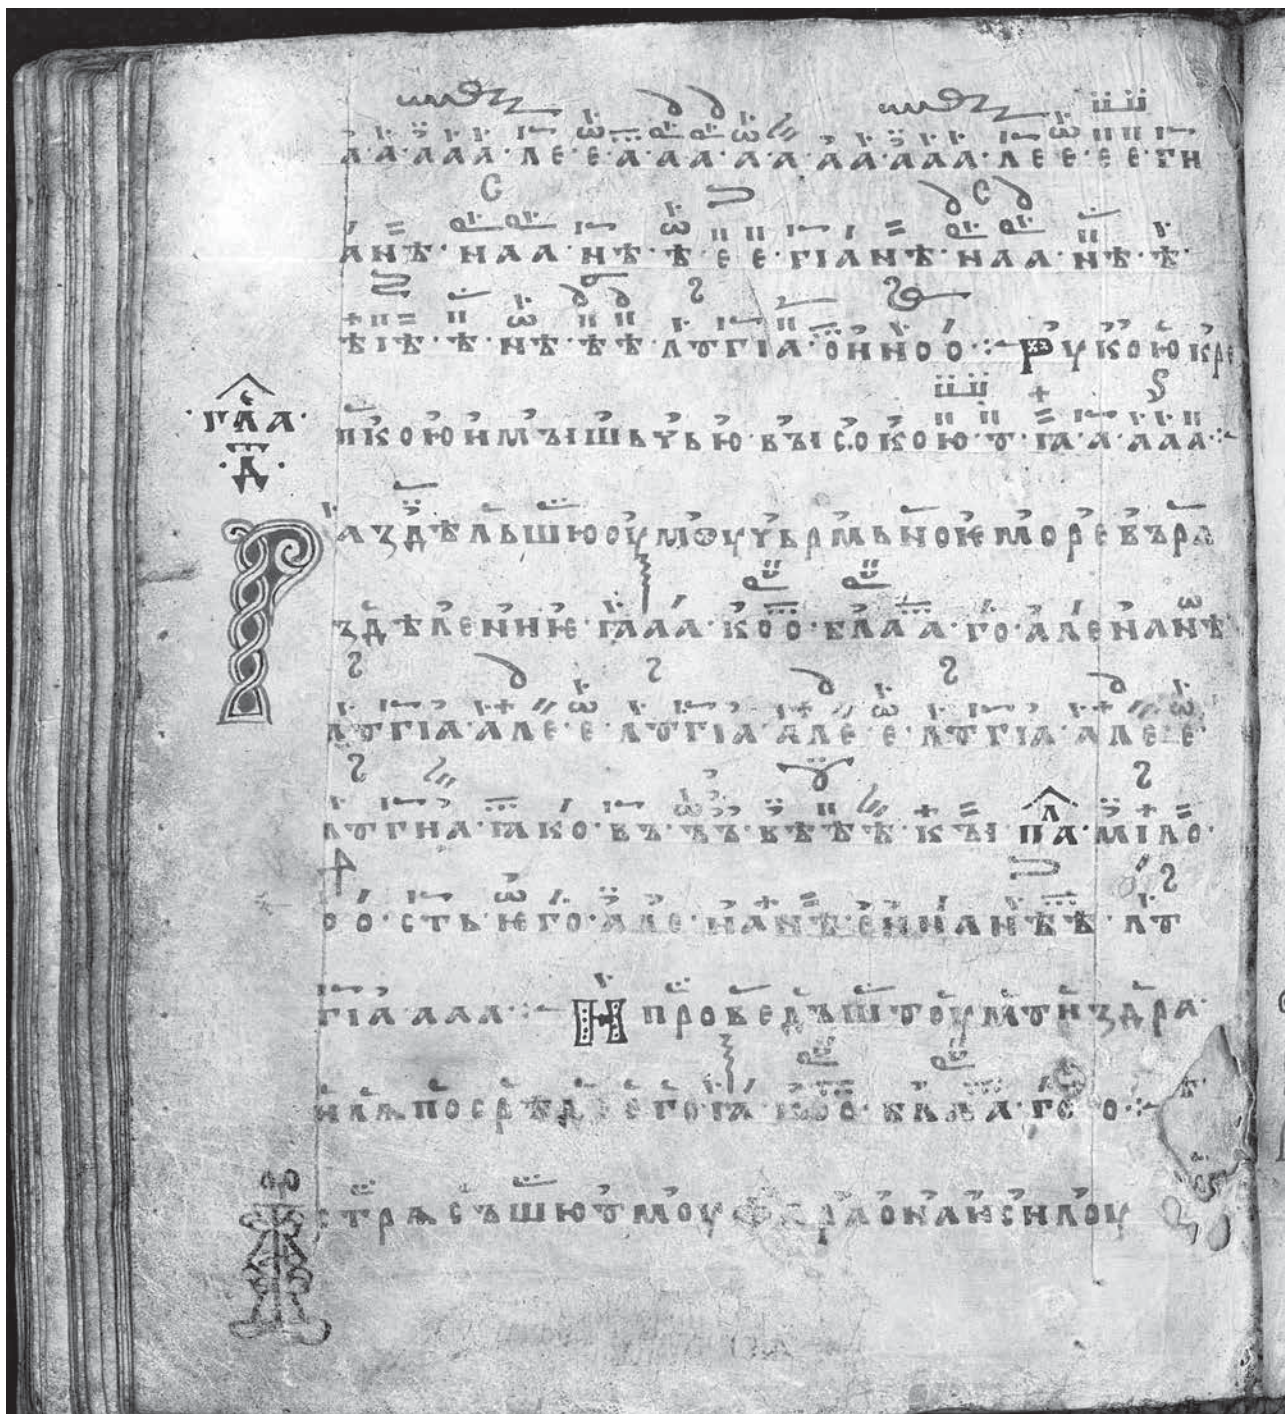 а·а·ааа·ле·е·а·аа·а·а·аа·ааа·ле·е·е·е·ги
анѣ·наа·нѣ·ѣ·е·е·гіанѣ·наа·нѣ·ѣ·
ѣіѣ·ѣ·нѣ·ѣ·ѣ·лꙋгіа·онноо·:~ Рꙋкоюкрѣ
·гла·
пкоюимъішьцьювъісокою·ꙋ·ꙗ·а·ааа·:~
·д·
Раздѣльшюоумоучьрмьноѥморевъра
здѣлениѥ·ꙗаа·коо·блаа·го·аленанѣ
лꙋгіа·але·е·лꙋгіа·але·е·лꙋгіа·але·е·
лꙋгиа·ꙗко·въ·ъъ·вѣѣѣ·къі·па·міло·
оо·сть·ѥго·але·нанѣ·еннанѣѣ·лꙋ
гіа·ааа·:~ И проведъшꙋоумꙋиздра
илѧпосрѣдѣего·ꙗ·коо·блаа·го·о·:~
Истрѧсъшюꙋмоуфараонаисилоу